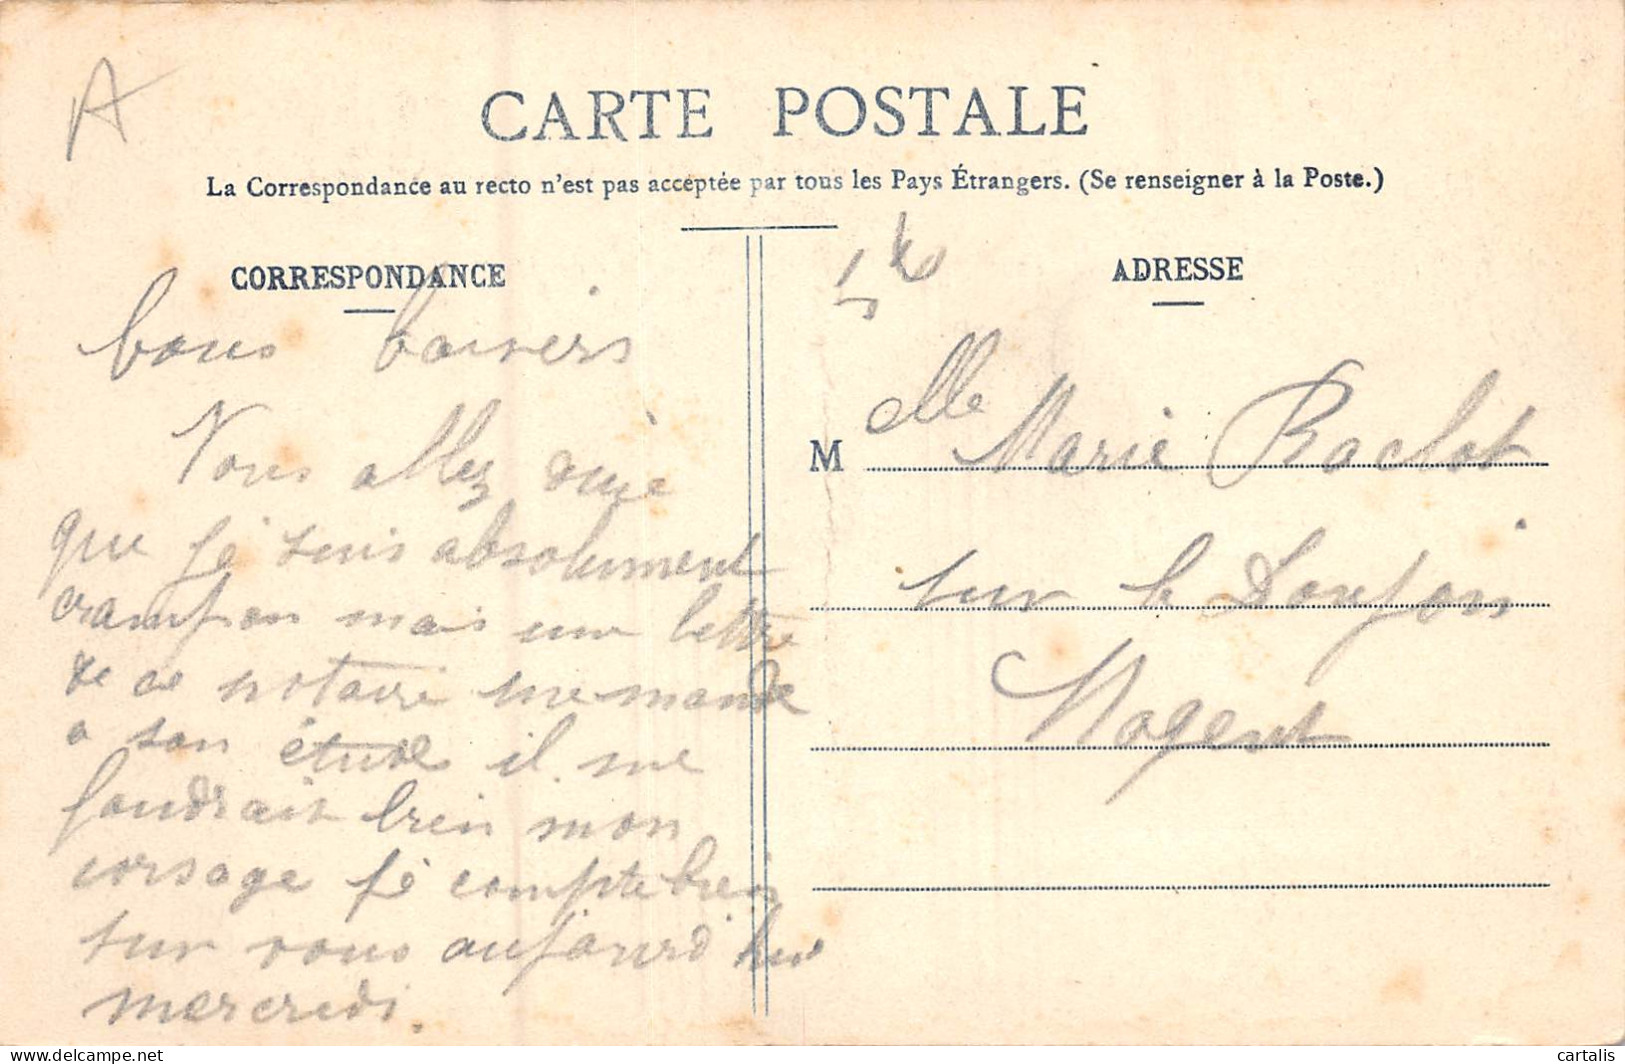 A
CARTE POSTALE
La Correspondance au recto n'est pas acceptée par tous les Pays Étrangers. (Se renseigner à la Poste.)
CORRESPONDANCE
bons baisers
Vous allez dire
que je suis absolument
crampon mais une lettre
de ce notaire me mande
a son étude il me
faudrait bien mon
corsage je compte bien
sur vous aujourd'hui
mercredi.
ADRESSE
M elle Marie Raclot
sur le Donjon
Nogent
cartalis
www.delcampe.net